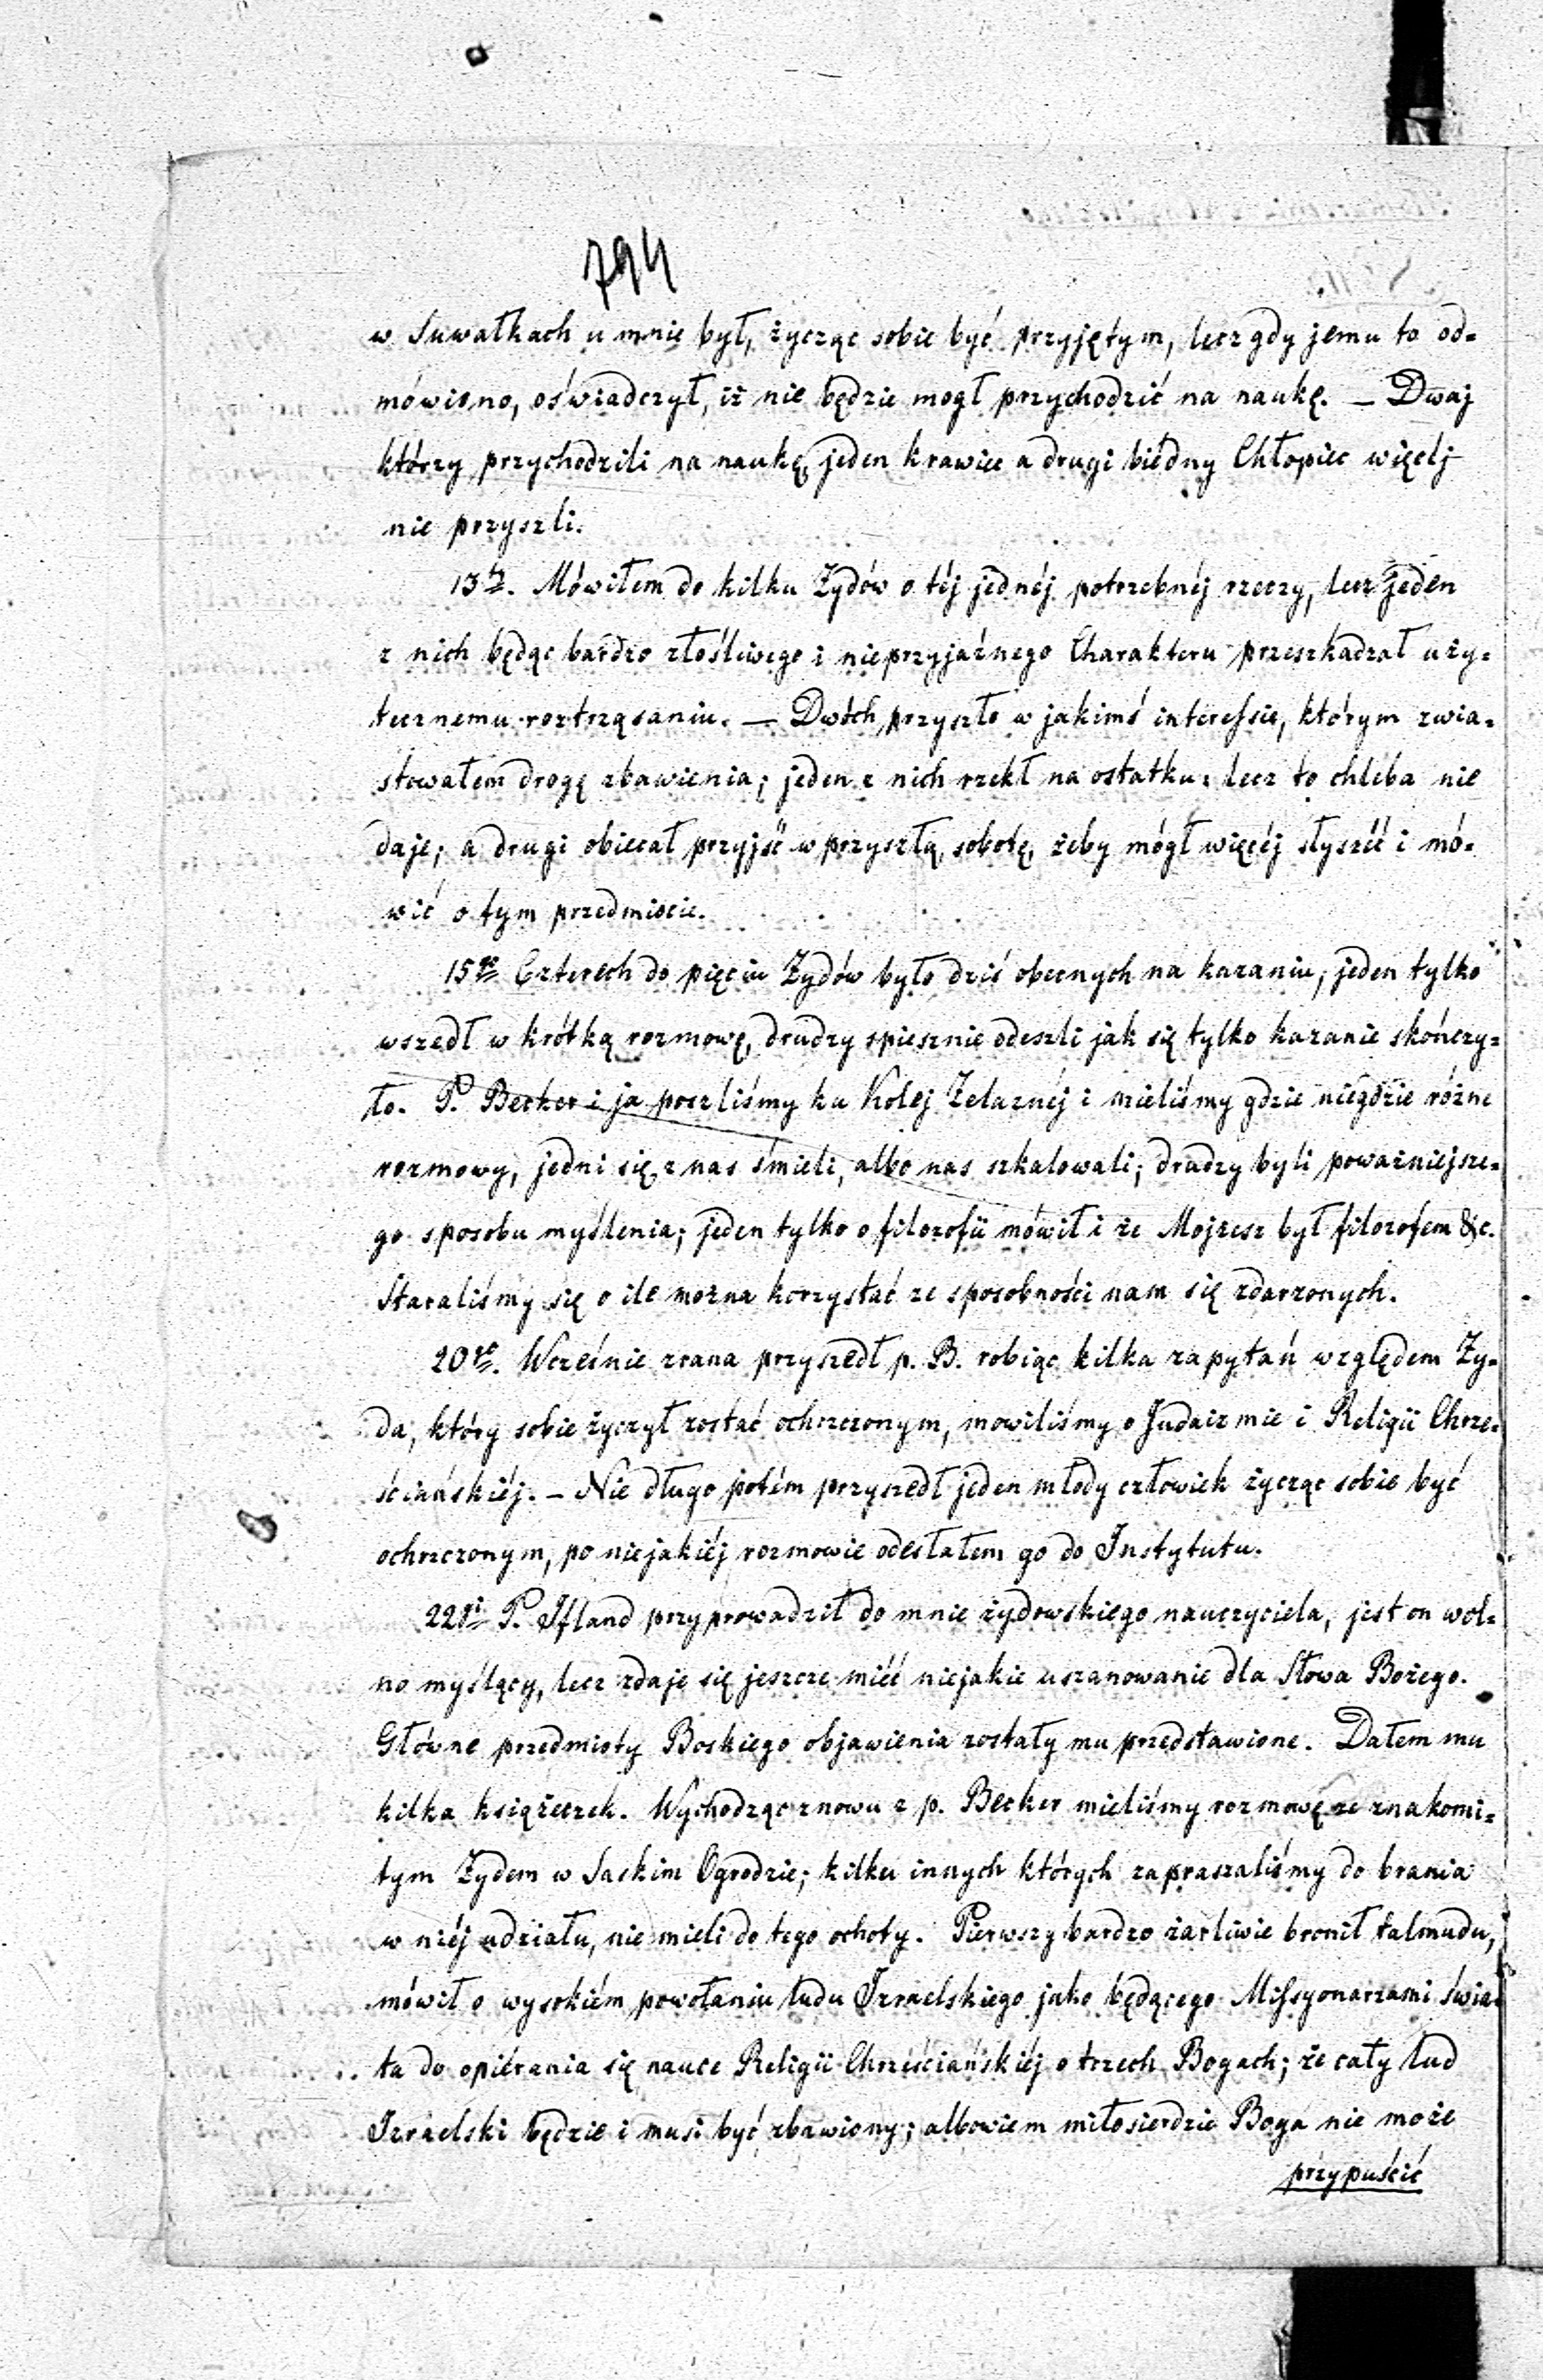 794
w Suwałkach u mnie był, życząc sobie być przyjętym, lecz gdy jemu to od=
mówiono, oświadczył, iż nie będzie mogł przychodzić na naukę. — Dwaj
którzy przychodzili na naukę, jeden krawiec a drugi biédny Chłopiec więcéj
nie przyszli.
13go. Mówiłem do kilku Żydów o téj jednéj potrzebnéj rzeczy, lecz jeden
z nich będąc bardzo złośliwego i nieprzyjaźnego Charakteru przeszkadzał uży=
tecznemu roztrząsaniu. — Dwóch przyszło w jakimś interessie, którym zwia=
stowałem drogę zbawienia; jeden z nich rzekł na ostatku: lecz to chleba nie
daje; a drugi obiecał przyjść w przyszłą sobotę, żeby mógł więcéj słyszéć i mó=
wić o tym przedmiocie.
15go Czterech do pięciu Żydów było dziś obecnych na kazaniu, jeden tylko
wszedł w krótką rozmowę, drudzy spiesznie odeszli jak się tylko kazanie skończy=
ło. P. Becker i ja poszliśmy ku Kolej Żelaznéj i mieliśmy gdzie niegdzie różne
rozmowy, jedni się z nas śmieli, albo nas szkalowali; drudzy byli poważniejsze=
go sposobu myślenia; jeden tylko o filozofii mówił i że Mojżesz był filozofem &c.
Staraliśmy się o ile można korzystać ze sposobności nam się zdarzonych.
20go. Wcześnie zrana przyszedł p. B. robiąc kilka zapytań względem Ży=
da, który sobie życzył zostać ochrzczonym, mowiliśmy o Judaizmie i Religii Chrze=
ściańskiéj. — Nie długo potém przyszedł jeden młody człowiek życząc sobie być
ochrzczonym, po niejakiéj rozmowie odesłałem go do Instytutu.
22gi P. Ifland przyprowadził do mnie żydowskiego nauczyciela, jest on wol=
no myślący, lecz zdaje się jeszcze miéć niejakie uszanowanie dla Słowa Bożego.
Główne przedmioty Boskiego objawienia zostały mu przedstawione. Dałem mu
kilka książeczek. Wychodząc znowu z p. Becker mieliśmy rozmowę ze znakomi=
tym Żydem w Saskim Ogrodzie; kilku innych których zapraszaliśmy do brania
w niéj udziału, nie mieli do tego ochoty. Pierwszy bardzo żarliwie bronił talmudu,
mówił o wysokiém powołaniu ludu Izraelskiego jako będącego Missyonarzami świa=
ta do opiérania się nauce Religii Chrześciańskiéj o trzech Bogach; że cały lud
Izraelski będzie i musi być zbawiony; albowiem miłosierdzie Boga nie może
przypuścić